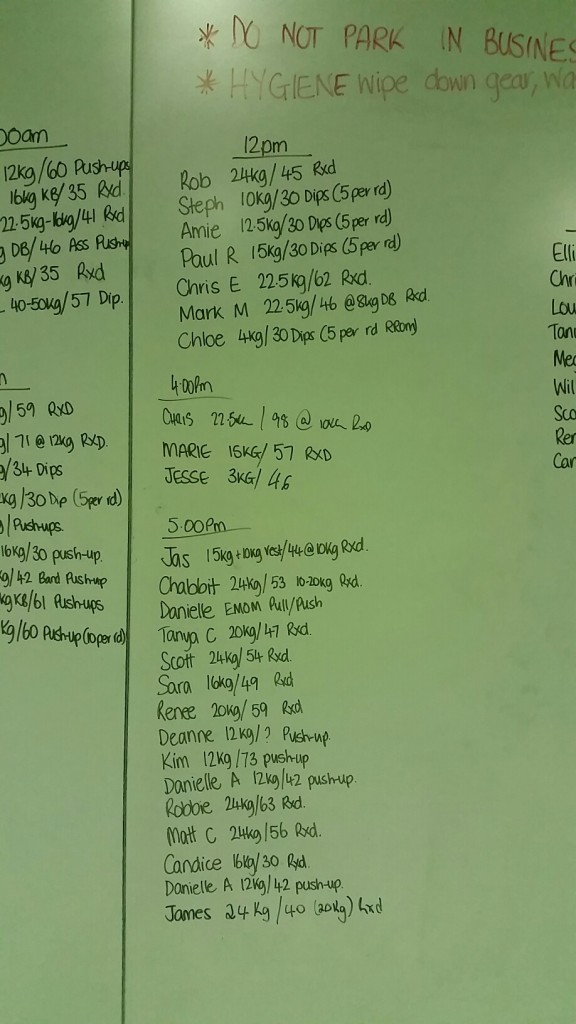 * DO NOT PARK IN BUSINES
* HYGIENE wipe down gear, wa
00am
12kg/60 Push-ups
16kg KB/35 Rxd.
22.5kg-16kg/41 Rxd
g DB/46 Ass Push-up
kg KB/35 Rxd
40-50kg/57 Dip.
g/59 RXD
g/71 @ 12kg RXD.
g/34 Dips
kg/30 Dip (5 per rd)
g/Push-ups.
16kg/30 push-up.
kg/42 Band Push-up
kg KB/61 Push-ups
kg/60 Push-up (10 per rd)
12pm
Rob 24kg/45 Rxd
Steph 10kg/30 Dips (5 per rd)
Amie 12.5kg/30 Dips (5 per rd)
Paul R 15kg/30 Dips (5 per rd)
Chris E 22.5kg/62 Rxd.
Mark M 22.5kg/46 @ 8kg DB Rxd.
Chloe 4kg/30 Dips (5 per rd RRom)
4:00Pm
CHRIS 22.5KG / 98 @ 10KG RXD
MARIE 15KG/57 RXD
JESSE 3KG/46
5:00Pm
Jas 15kg+10kg vest/44 @ 10kg Rxd.
Chabbit 24kg/53 10-20kg Rxd.
Danielle EMOM Pull/Push
Tanya C 20kg/47 Rxd.
Scott 24kg/54 Rxd.
Sara 16kg/49 Rxd
Renee 20kg/59 Rxd
Deanne 12kg/? Push-up.
Kim 12kg/73 push-up
Danielle A 12kg/42 push-up.
Robbie 24kg/63 Rxd.
Matt C 24kg/56 Rxd.
Candice 16kg/30 Rxd.
Danielle A 12kg/42 push-up.
James 24Kg/40 (20kg) Rxd
Elli
Chri
Lou
Tan
Me
Wil
Sco
Ren
Can